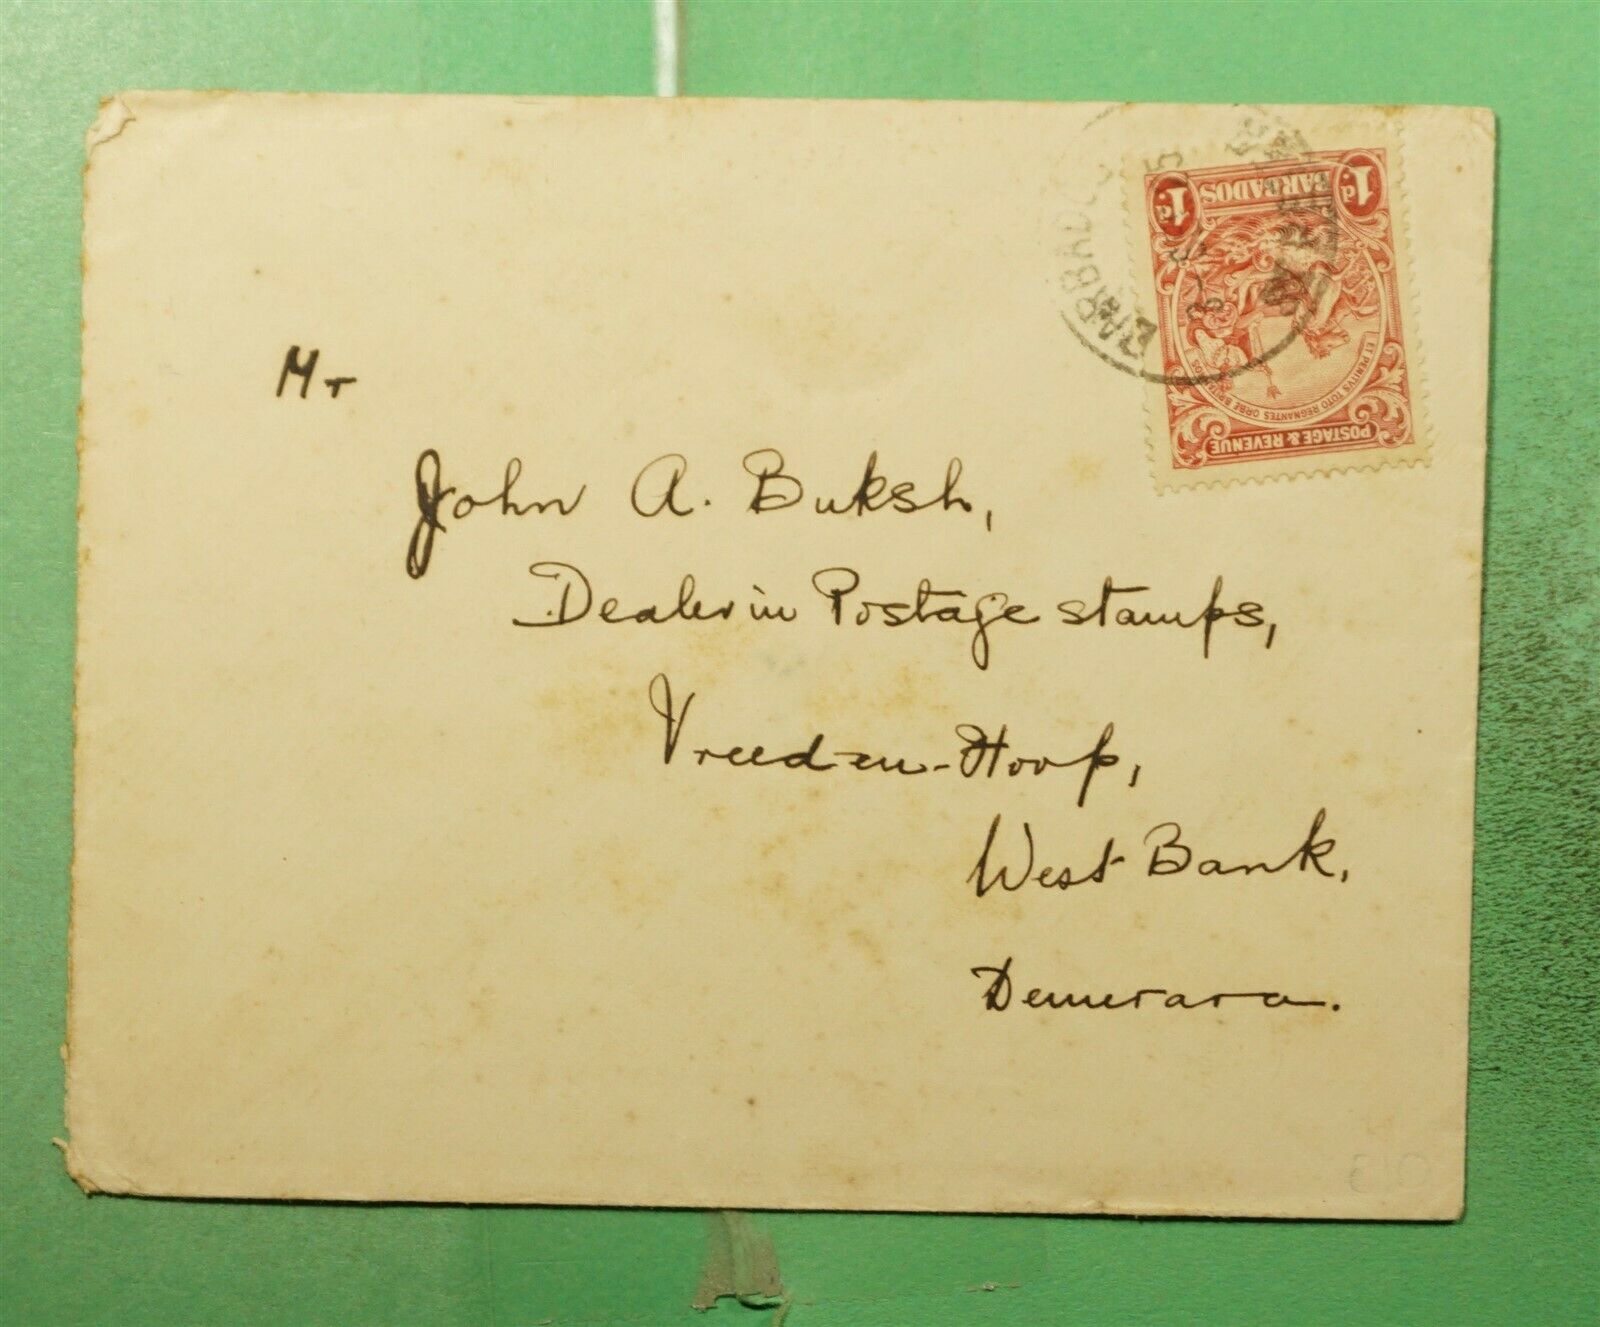 BARBADOS
1d
1d
BARBADOS
ET PENITVS TOTO REGNANTES ORBE BRITANNOS
POSTAGE & REVENUE
Mr
John A. Buksh,
Dealer in Postage stamps,
Vreed-en-Hoop,
West Bank,
Demerara.